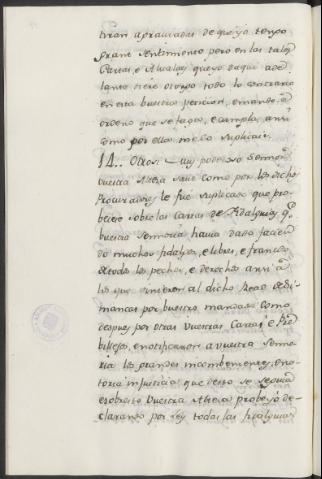 tiran apraciadas de que yo tengo
grant sentimiento pero en las tales
Cartas, e Alvalas que yo daqui ade
lante diere otorgo todo lo contenido
en esta vuestra peticion, e mando, e
ordeno que se faga, e cumpla, ansi
como por ellos me lo suplicais.
14.. Otrosi muy poderoso Señor
vuestra Alteza save como por los dichos
Procuradores le fue suplicado que pro
beiese sobre las Cartas de Fidalguias q.e
vuestra Señoria havia dado facien
do muchos fidalgos, e libres, e francos
de todos los pechos, e derechos ansi a
los que vinieron al dicho Real de Si
mancas por vuestro mandado como
despues por otras vuestras Cartas e Pre
billejos, e notificaron a vuestra Seño
ria los grandes incombenientes, e no
toria injusticia que desto se seguia
e sobresto vuestra Alteza probeyó de
clarando por ley todas las fidalguias